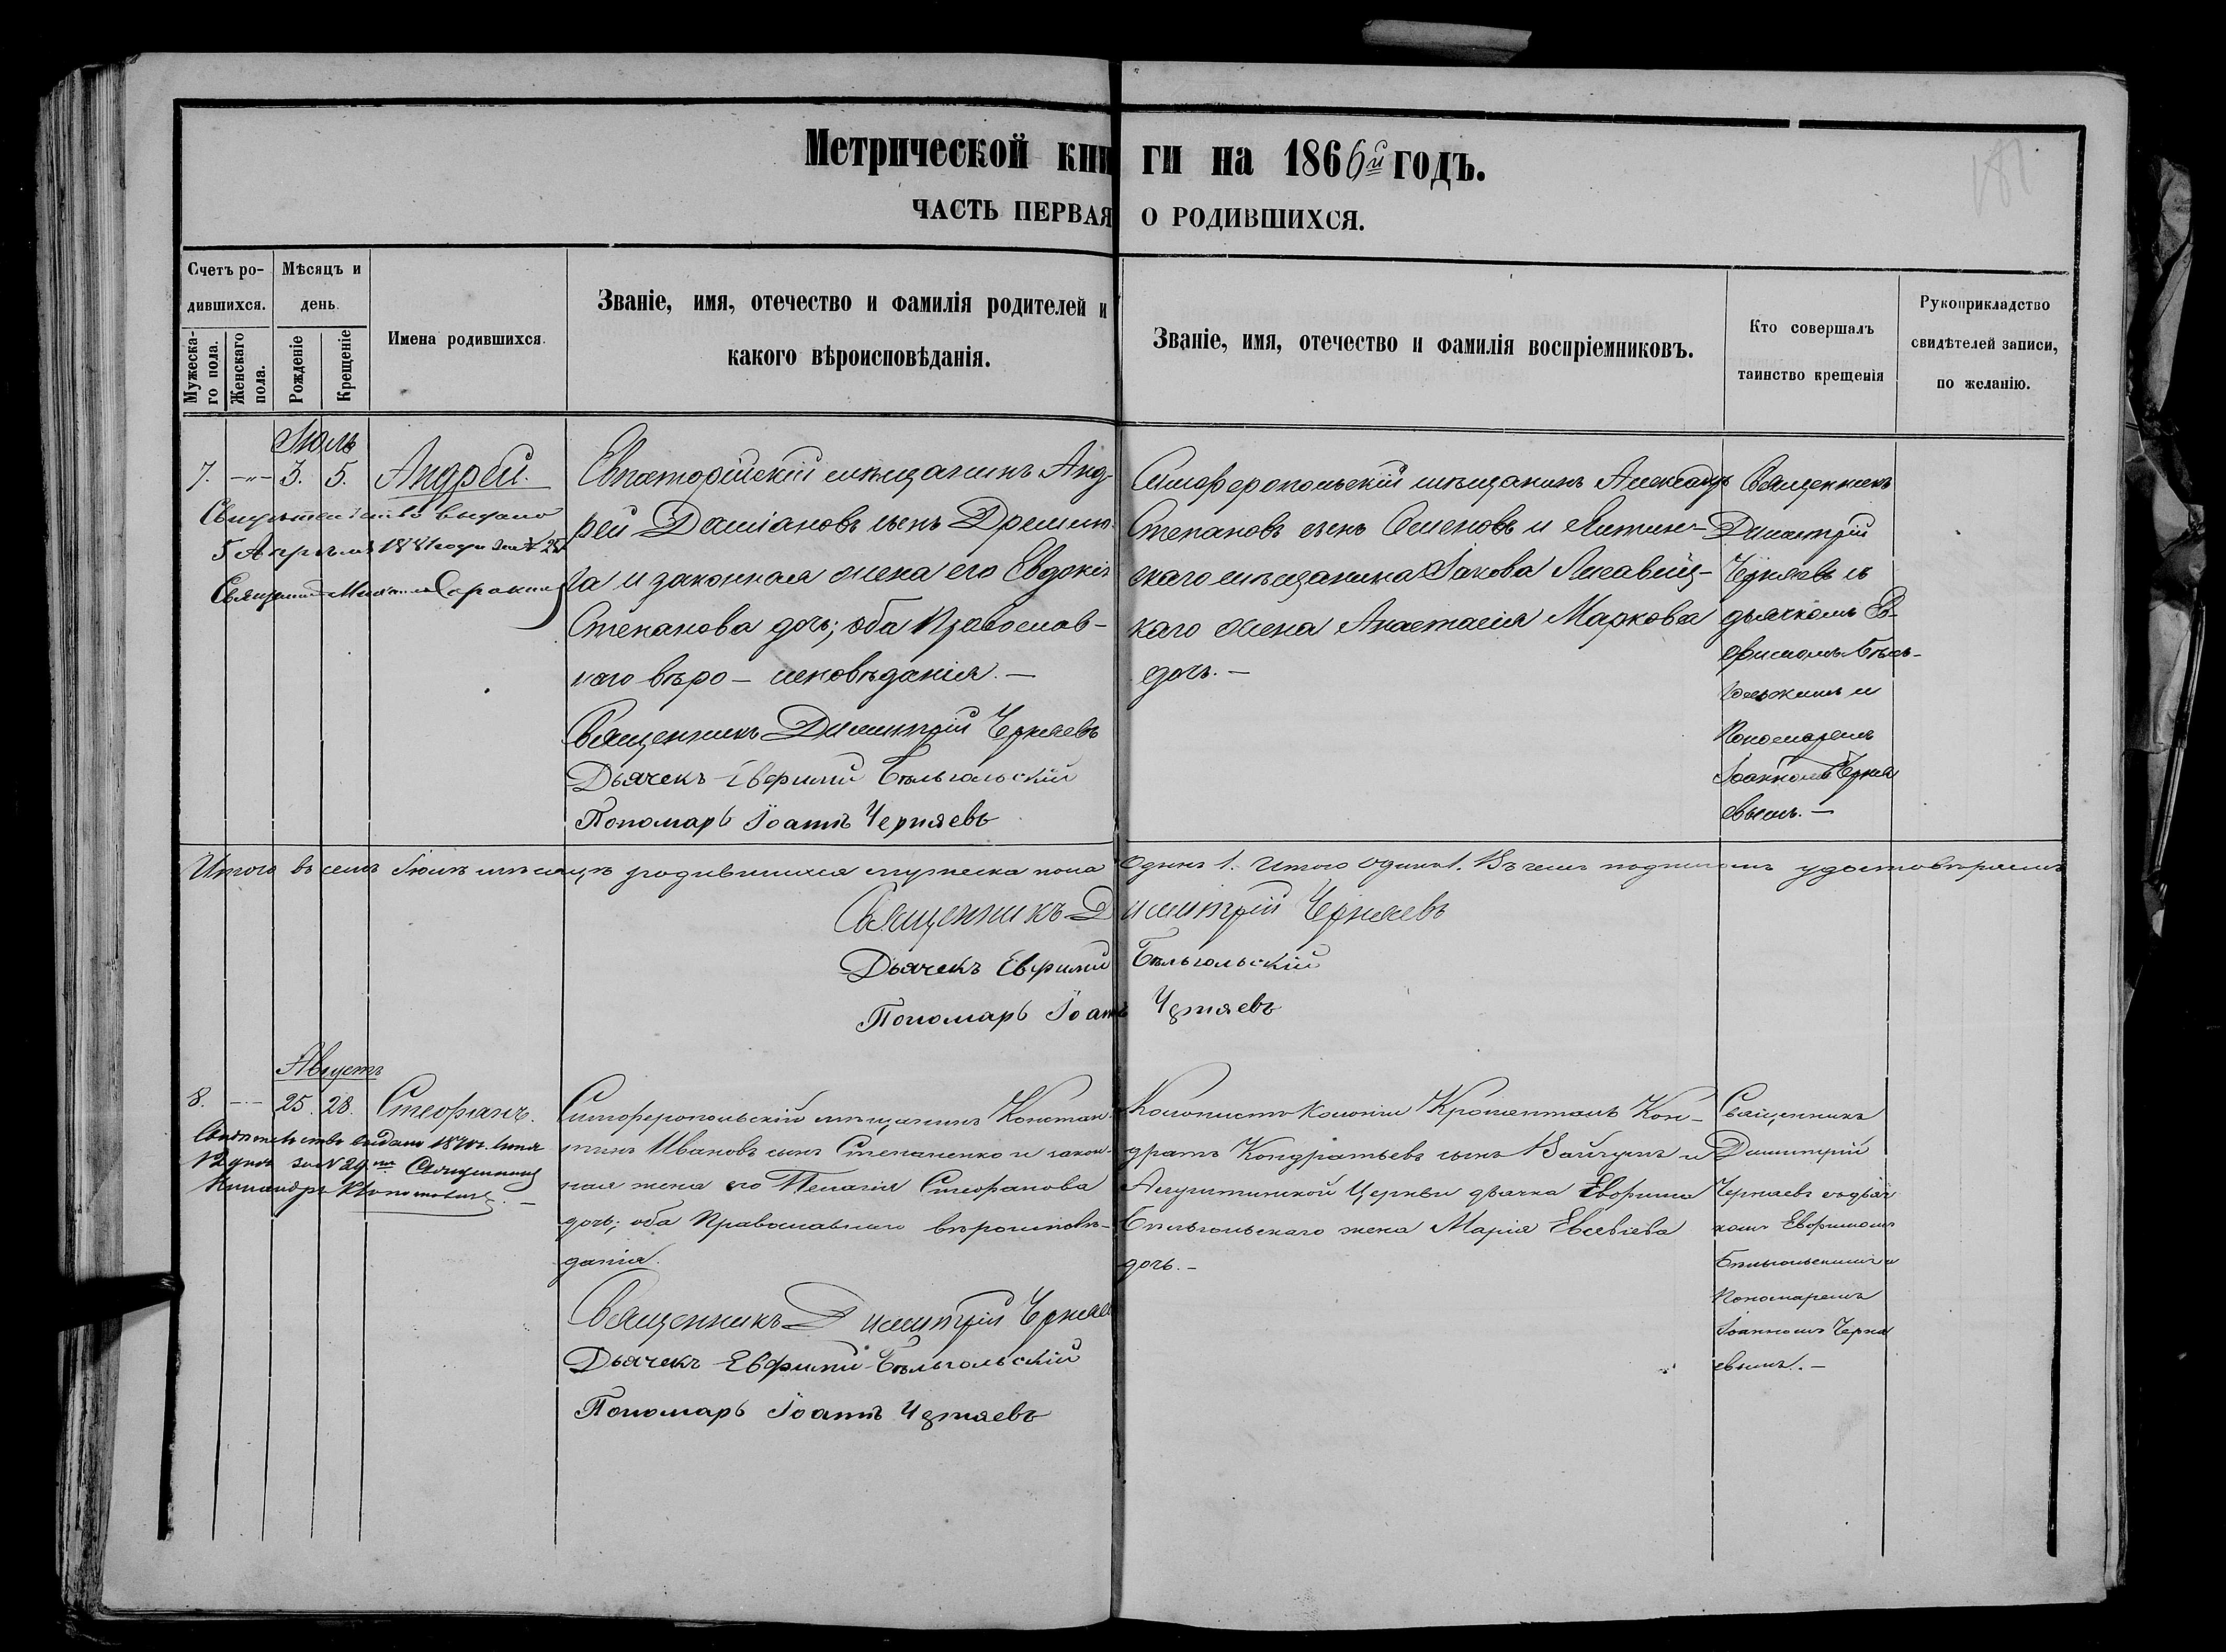 Метрической книги на 1866й годъ.
ЧАСТЬ ПЕРВАЯ О РОДИВШИХСЯ.
181
Счетъ родившихся.
Мужескаго пола.
Женскаго пола.
Мѣсяцъ и день.
Рожденіе
Крещеніе
Имена родившихся.
Званіе, имя, отечество и фамилія родителей и
какого вѣроисповѣданія.
Званіе, имя, отечество и фамилія воспріемниковъ.
Кто совершалъ
таинство крещенія
Рукоприкладство
свидѣтелей записи,
по желанію.
Іюль
7. -"- 3. 5. Андрей.
Свидѣтельство выдано
5 Апрѣля 1881 года за №
Священникъ Михаилъ
Евпаторійскій мѣщанинъ Анд-
рей Даміановъ сынъ
га и законная жена его Евдокія
Степанова дочь; оба Православ-
наго вѣро-исповѣданія.-
Священникъ Димитрій Черняевъ
Дьячекъ Евфимій Бѣльгольскій
Пономарь Іоаннъ Черняевъ
Симферопольскій мѣщанинъ Александръ
Степановъ сынъ Семеновъ и
скаго мѣщанина Іакова
каго жена Анастасія Маркова
дочь.-
Священникъ
Димитрій
Черняевъ съ
дьячкомъ Ев-
фиміемъ Бѣль-
гольскимъ и
Пономаремъ
Іоанномъ Черня
евымъ.-
Итого въ семъ Іюлѣ мѣсяцѣ родившихся мужеска пола Одинъ 1. Итого одинъ 1. Въ чемъ подписомъ удостовѣряемъ
Священникъ Димитрій Черняевъ
Дьячекъ Евфимій Бѣльгольскій
Пономарь Іоаннъ Черняевъ
Августъ
8. -"- 25. 28. Стефанъ.
Свидѣтельство выдано 1870г. Іюня
12 дня за № 29м Священникъ
Симферопольскій мѣщанинъ Констан-
тинъ Ивановъ сынъ Степаненко и закон-
ная жена его Пелагія Стефанова
дочь; оба Православнаго вѣроисповѣ-
данія.
Священникъ Димитрій Черняев
Дьячекъ Евфимій Бѣльгольскій
Пономарь Іоаннъ Черняевъ
Колонистъ Колоніи Кроненталь Кон-
дратъ Кондратьевъ сынъ и
Алуштинской Церкви дьячка Евфимія
Бѣльгольскаго жена Марія Евсевіева
дочь.-
Священникъ
Димитрій
Черняевъ съ дьяч
комъ Евфиміемъ
Бѣльгольскимъ и
Пономаремъ
Іоанномъ Черня
евымъ.-